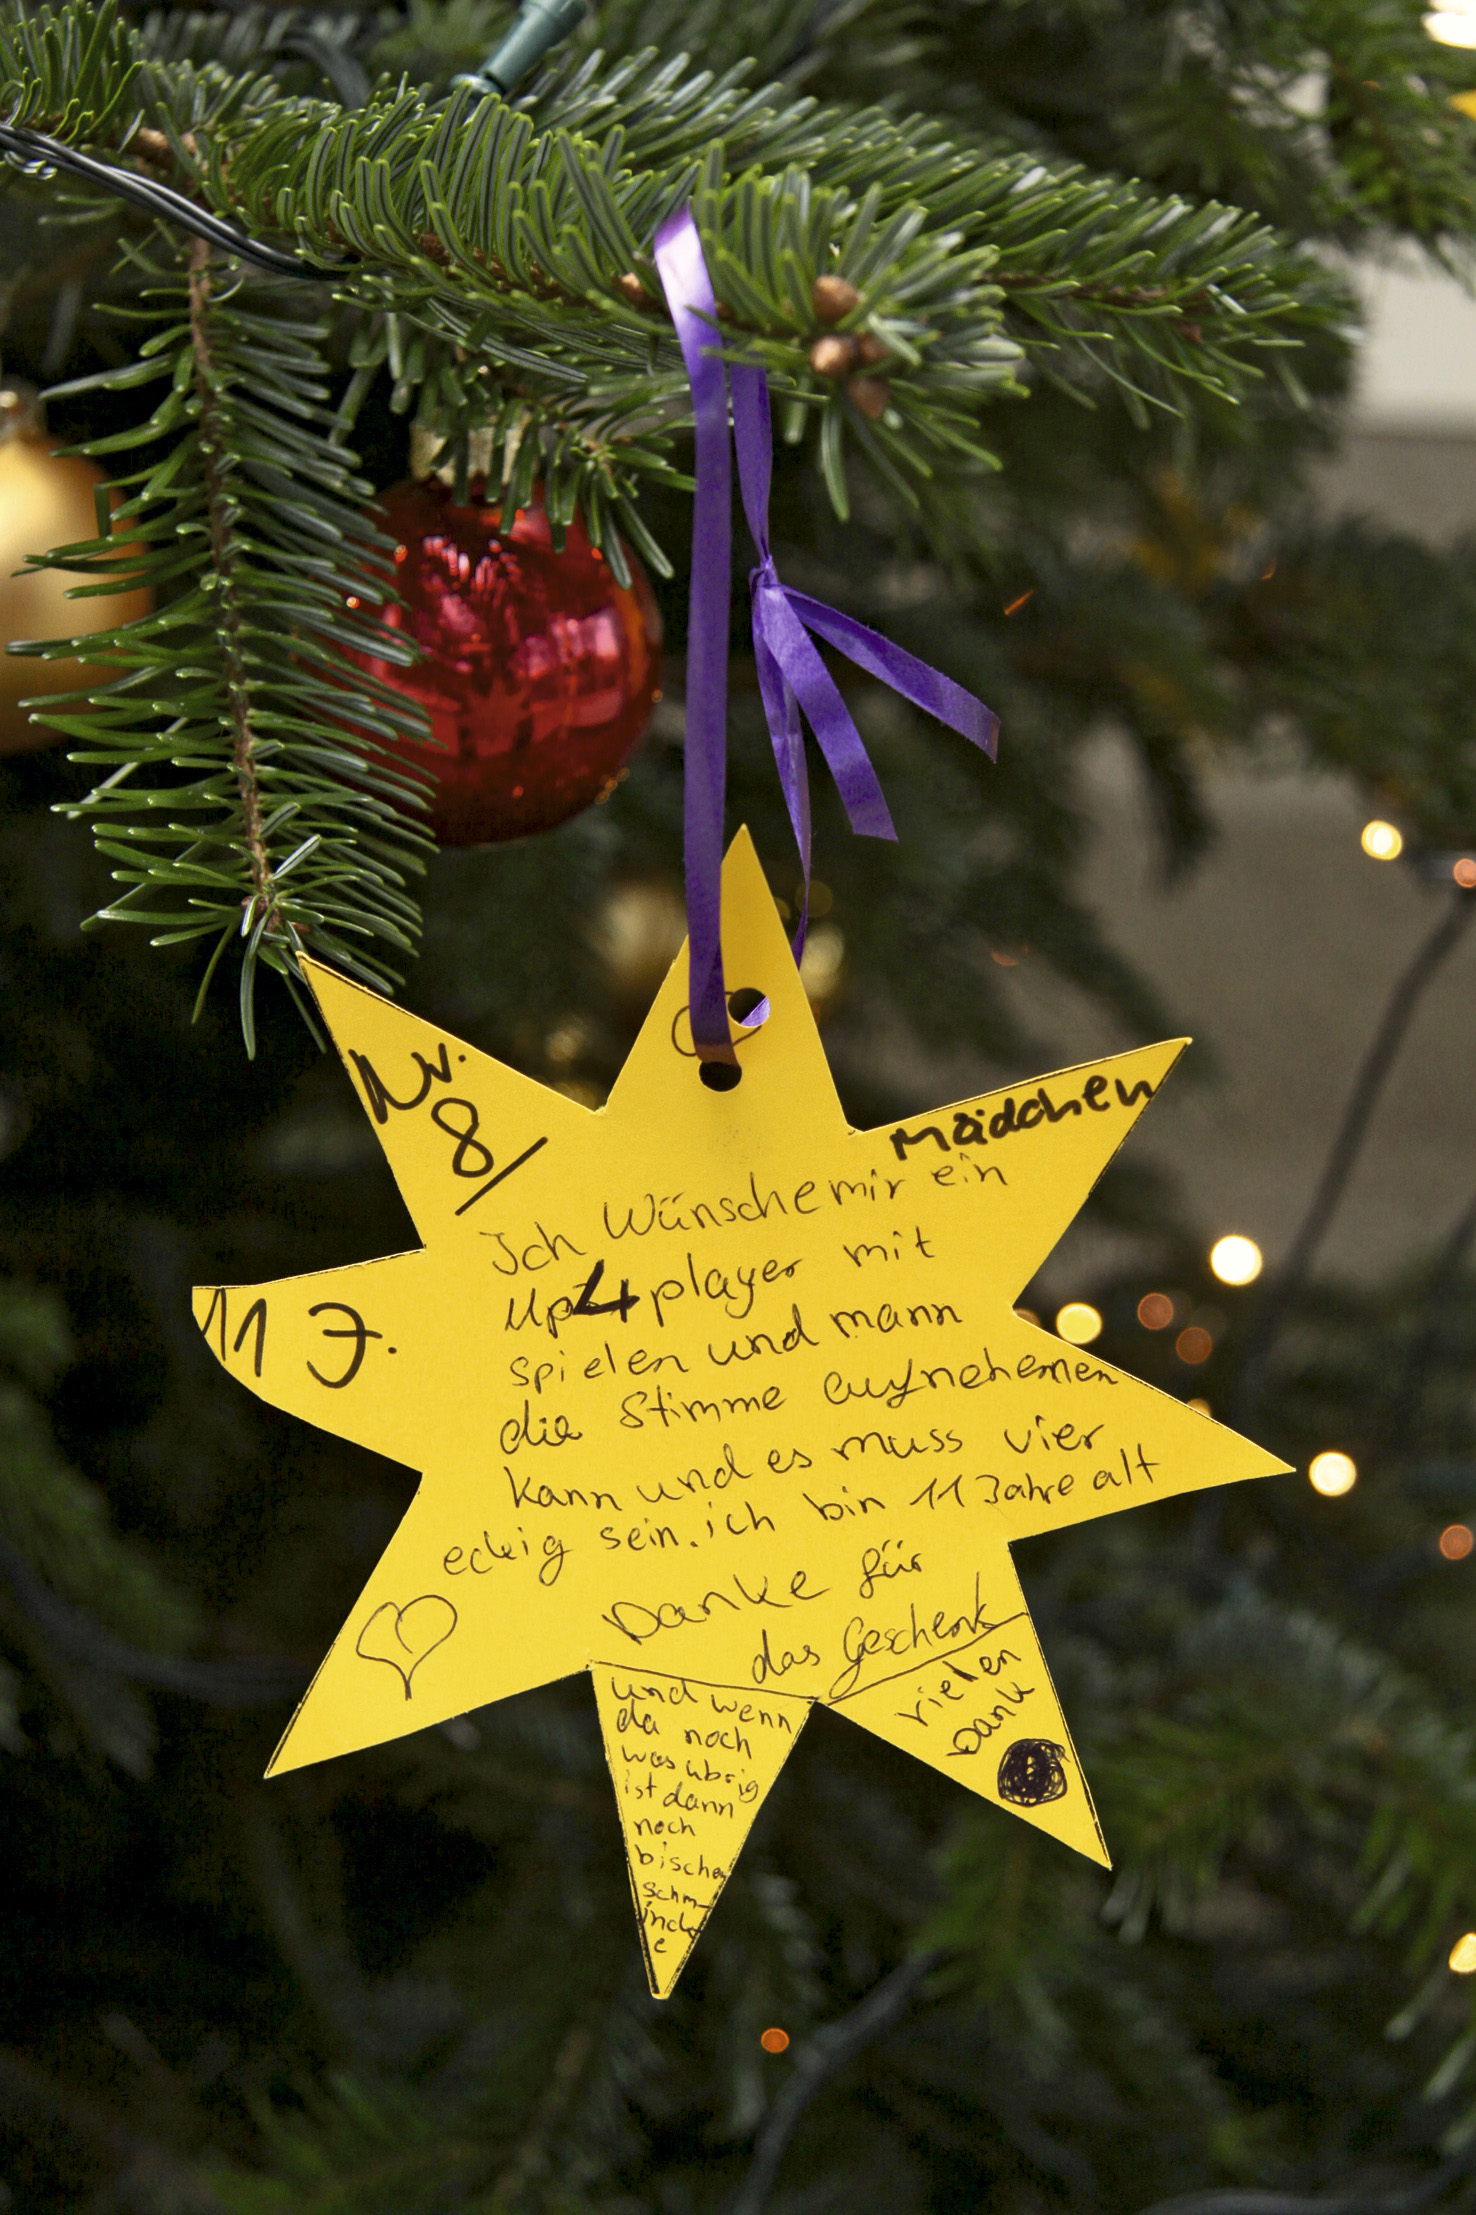 Nr.
8
Mädchen
11 J.
Ich Wünsche mir ein
Mp4player mit
spielen und mann
die Stimme aufnehemen
kann und es muss vier
eckig sein. ich bin 11 Jahre alt
Danke für
das Geschenk
und wenn
da noch
was übrig
ist dann
noch
bischen
schm-
inck
e
vielen
Dank